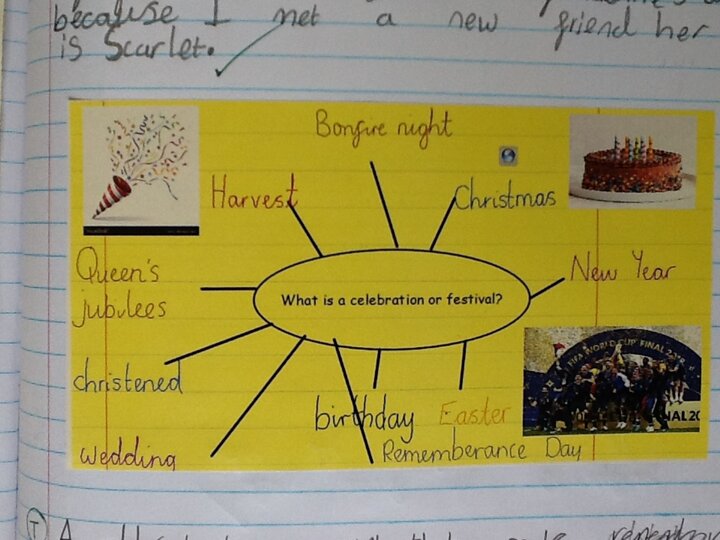 because I met a new friend her
is Scarlet.
Bonfire night
Harvest
Christmas
Queen's
jubilees
New Year
What is a celebration or festival?
FIFA WORLD CUP FINAL 2018
christened
birthday
Easter
wedding
Rememberance Day